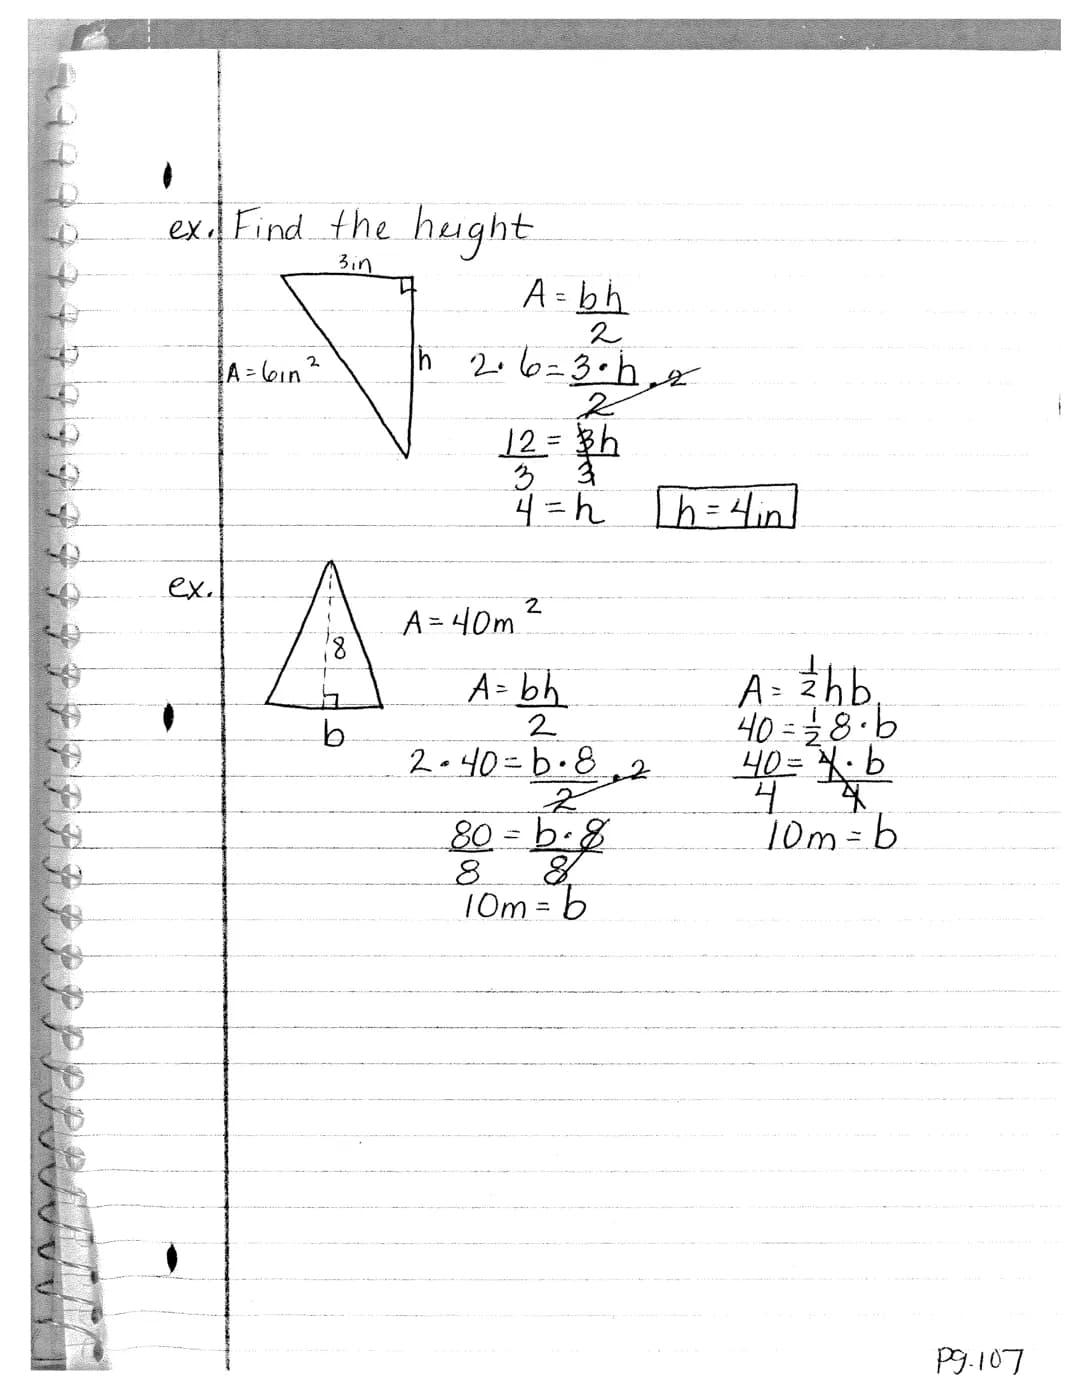 ex. Find the height
3in
A = bh
2
A = 6in²
h
2 · 6 = 3 · h · 2
2
12 = 3h
3 3
4 = h
h = 4in
ex.
A = 40m²
8
b
A = bh
2
2 · 40 = b · 8 · 2
2
80 = b · 8
8 8
10m = b
A = ½hb
40 = ½ 8 · b
40 = 4 · b
4 4
10m = b
pg. 107